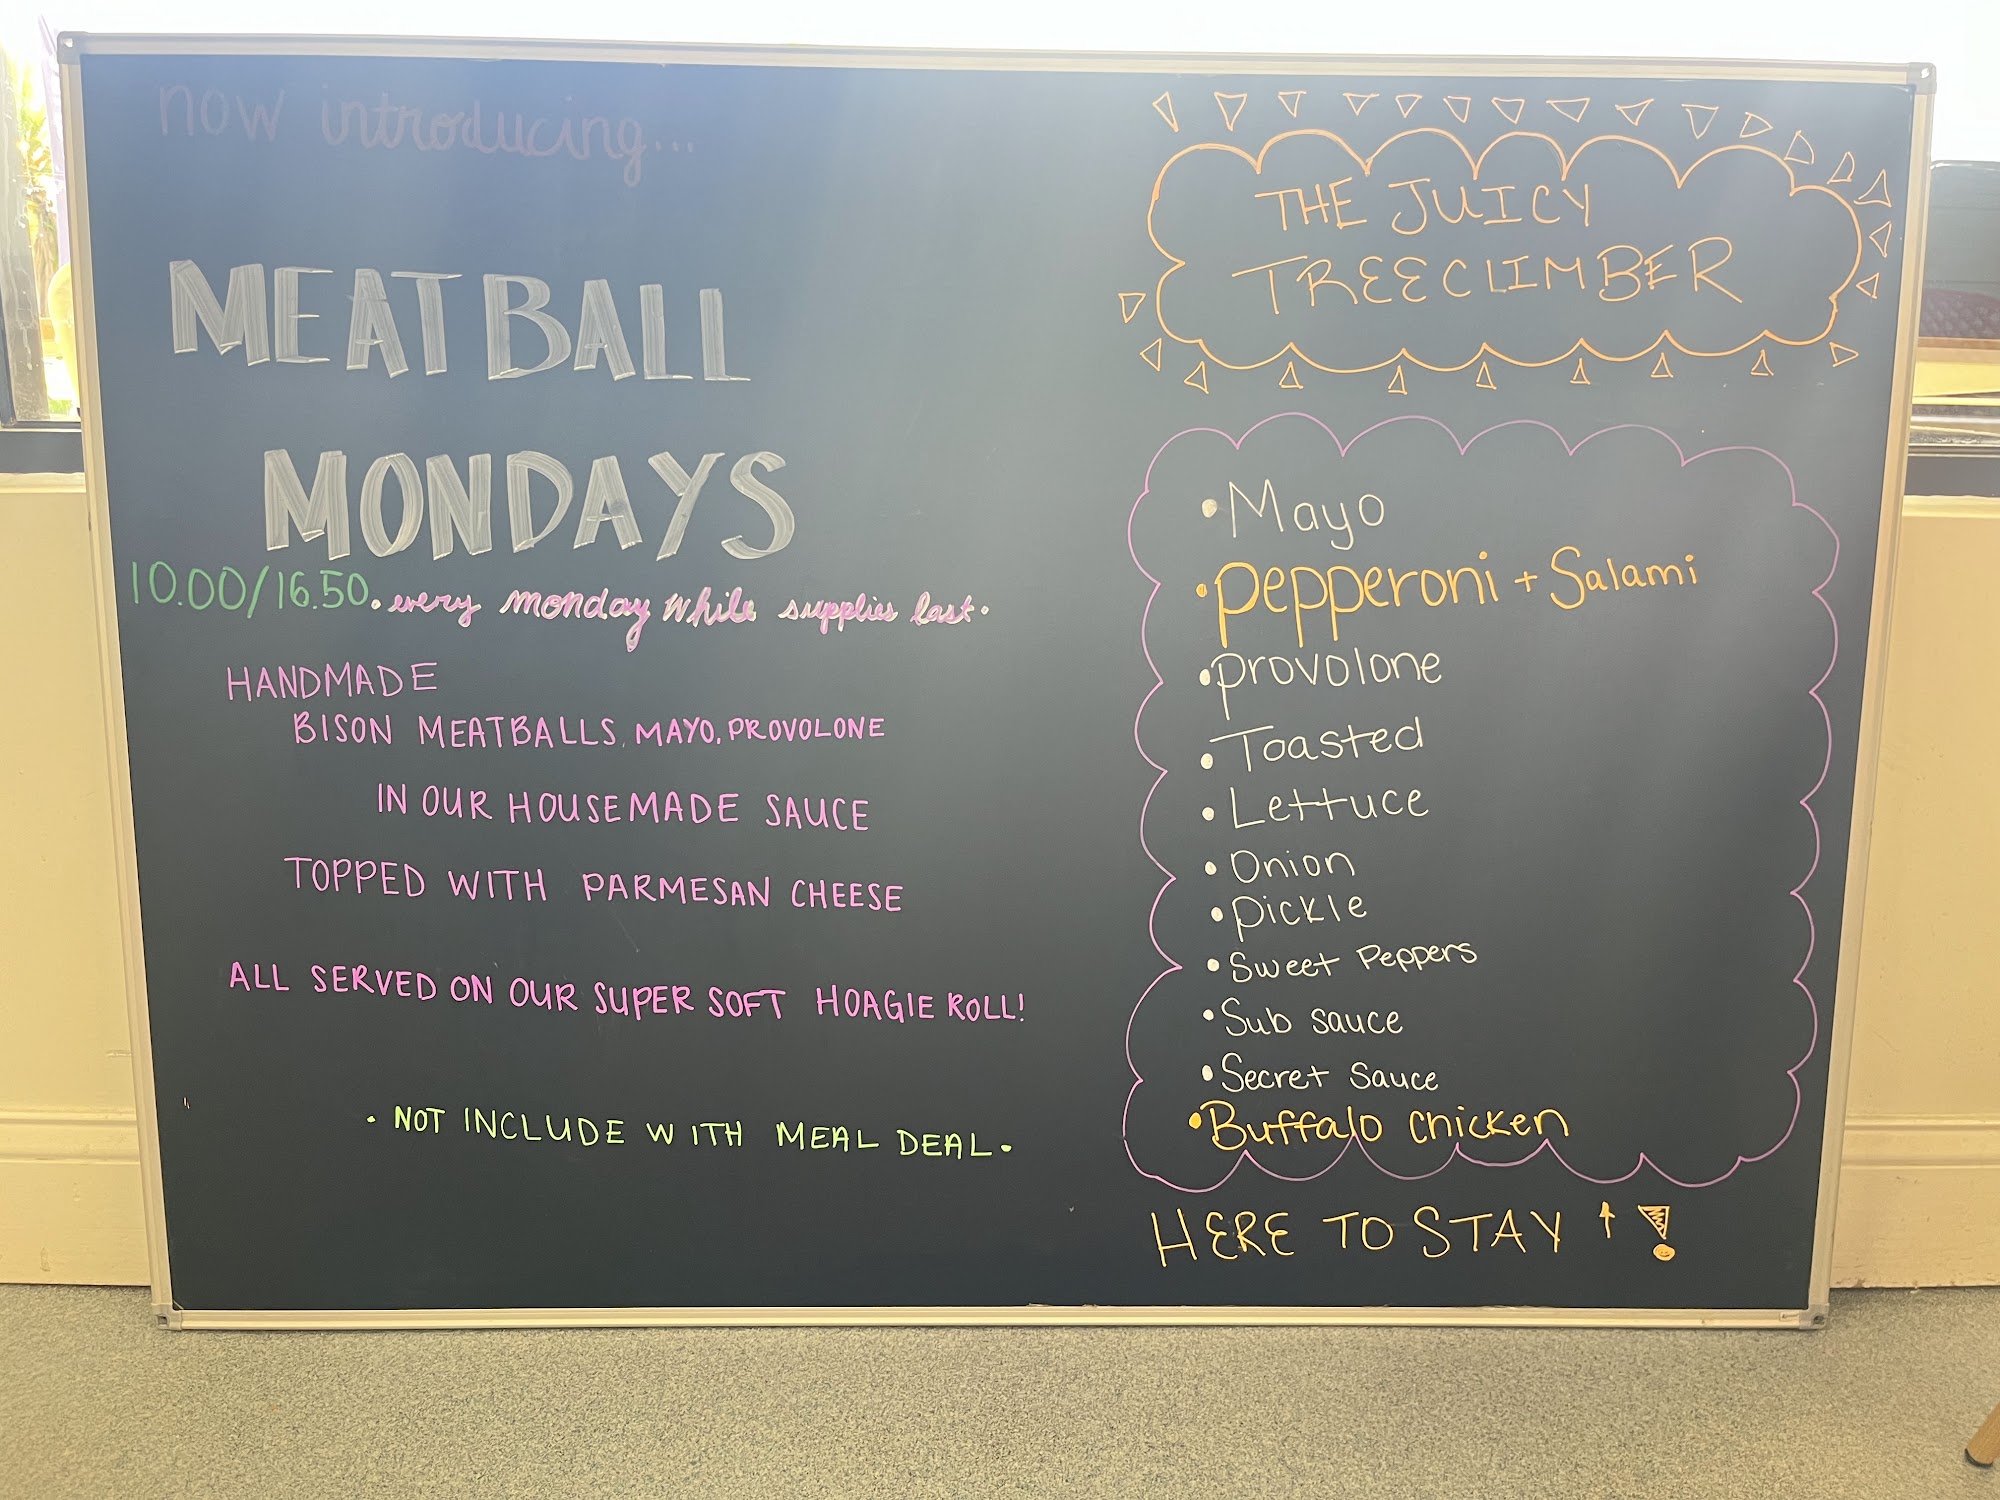 now introducing...
MEATBALL
MONDAYS
10.00/16.50. every monday while supplies last.
HANDMADE
BISON MEATBALLS, MAYO, PROVOLONE
IN OUR HOUSEMADE SAUCE
TOPPED WITH PARMESAN CHEESE
ALL SERVED ON OUR SUPER SOFT HOAGIE ROLL!
• NOT INCLUDE WITH MEAL DEAL •
THE JUICY
TREECLIMBER
• Mayo
• Pepperoni + Salami
• Provolone
• Toasted
• Lettuce
• Onion
• Pickle
• Sweet Peppers
• Sub sauce
• Secret sauce
• Buffalo chicken
HERE TO STAY ↑ !